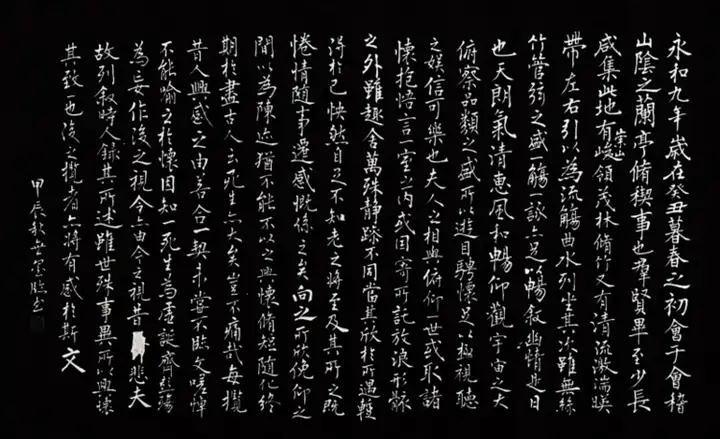 永和九年歲在癸丑暮春之初會于會稽
山陰之蘭亭脩稧事也群賢畢至少長
咸集此地有崇山峻領茂林脩竹又有清流激湍暎
帶左右引以為流觴曲水列坐其次雖無絲
竹管弦之盛一觴一詠亦足以暢敘幽情是日
也天朗氣清惠風和暢仰觀宇宙之大
俯察品類之盛所以遊目騁懷足以極視聽
之娛信可樂也夫人之相與俯仰一世或取諸
懷抱悟言一室之內或因寄所託放浪形骸
之外雖趣舍萬殊靜躁不同當其欣於所遇暫
得於己怏然自足不知老之將至及其所之既
惓情隨事遷感慨係之矣向之所欣俛仰之
間以為陳迹猶不能不以之興懷脩短隨化終
期於盡古人云死生亦大矣豈不痛哉每攬
昔人興感之由若合一契未嘗不臨文嗟悼
不能喻之於懷固知一死生為虛誕齊彭殤
為妄作後之視今亦由今之視昔悲夫
故列敘時人錄其所述雖世殊事異所以興懷
其致一也後之攬者亦將有感於斯文
甲辰秋臨書